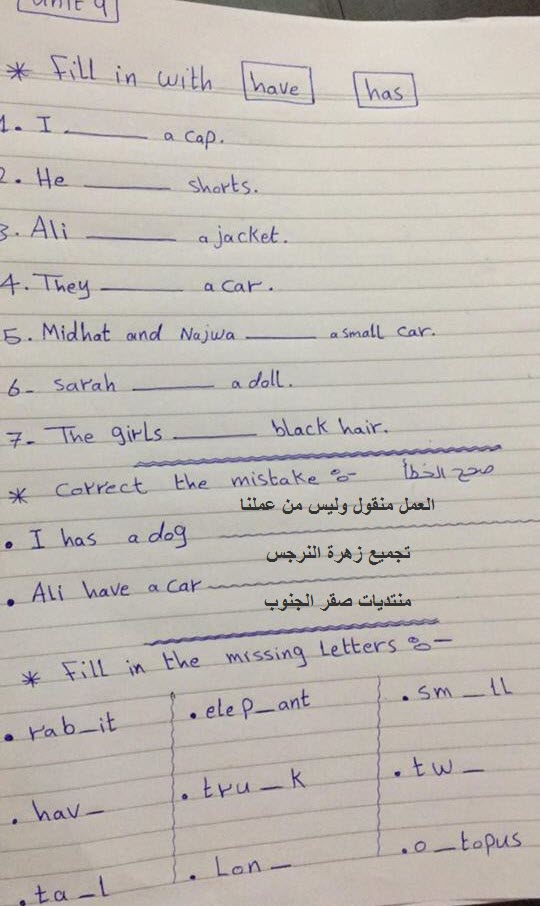 unit 9
* Fill in with have has
1. I ______ a cap.
2. He ______ shorts.
3. Ali ______ a jacket.
4. They ______ a car.
5. Midhat and Najwa ______ a small car.
6- sarah ______ a doll.
7- The girls ______ black hair.
* correct the mistake :- صحح الخطأ
العمل منقول وليس من عملنا
• I has a dog
تجميع زهرة النرجس
• Ali have a car
منتديات صقر الجنوب
* Fill in the missing Letters :-
• rab_it • elep_ant • sm_ll
• hav_ • tru_k • tw_
• ta_l • Lon_ • o_topus